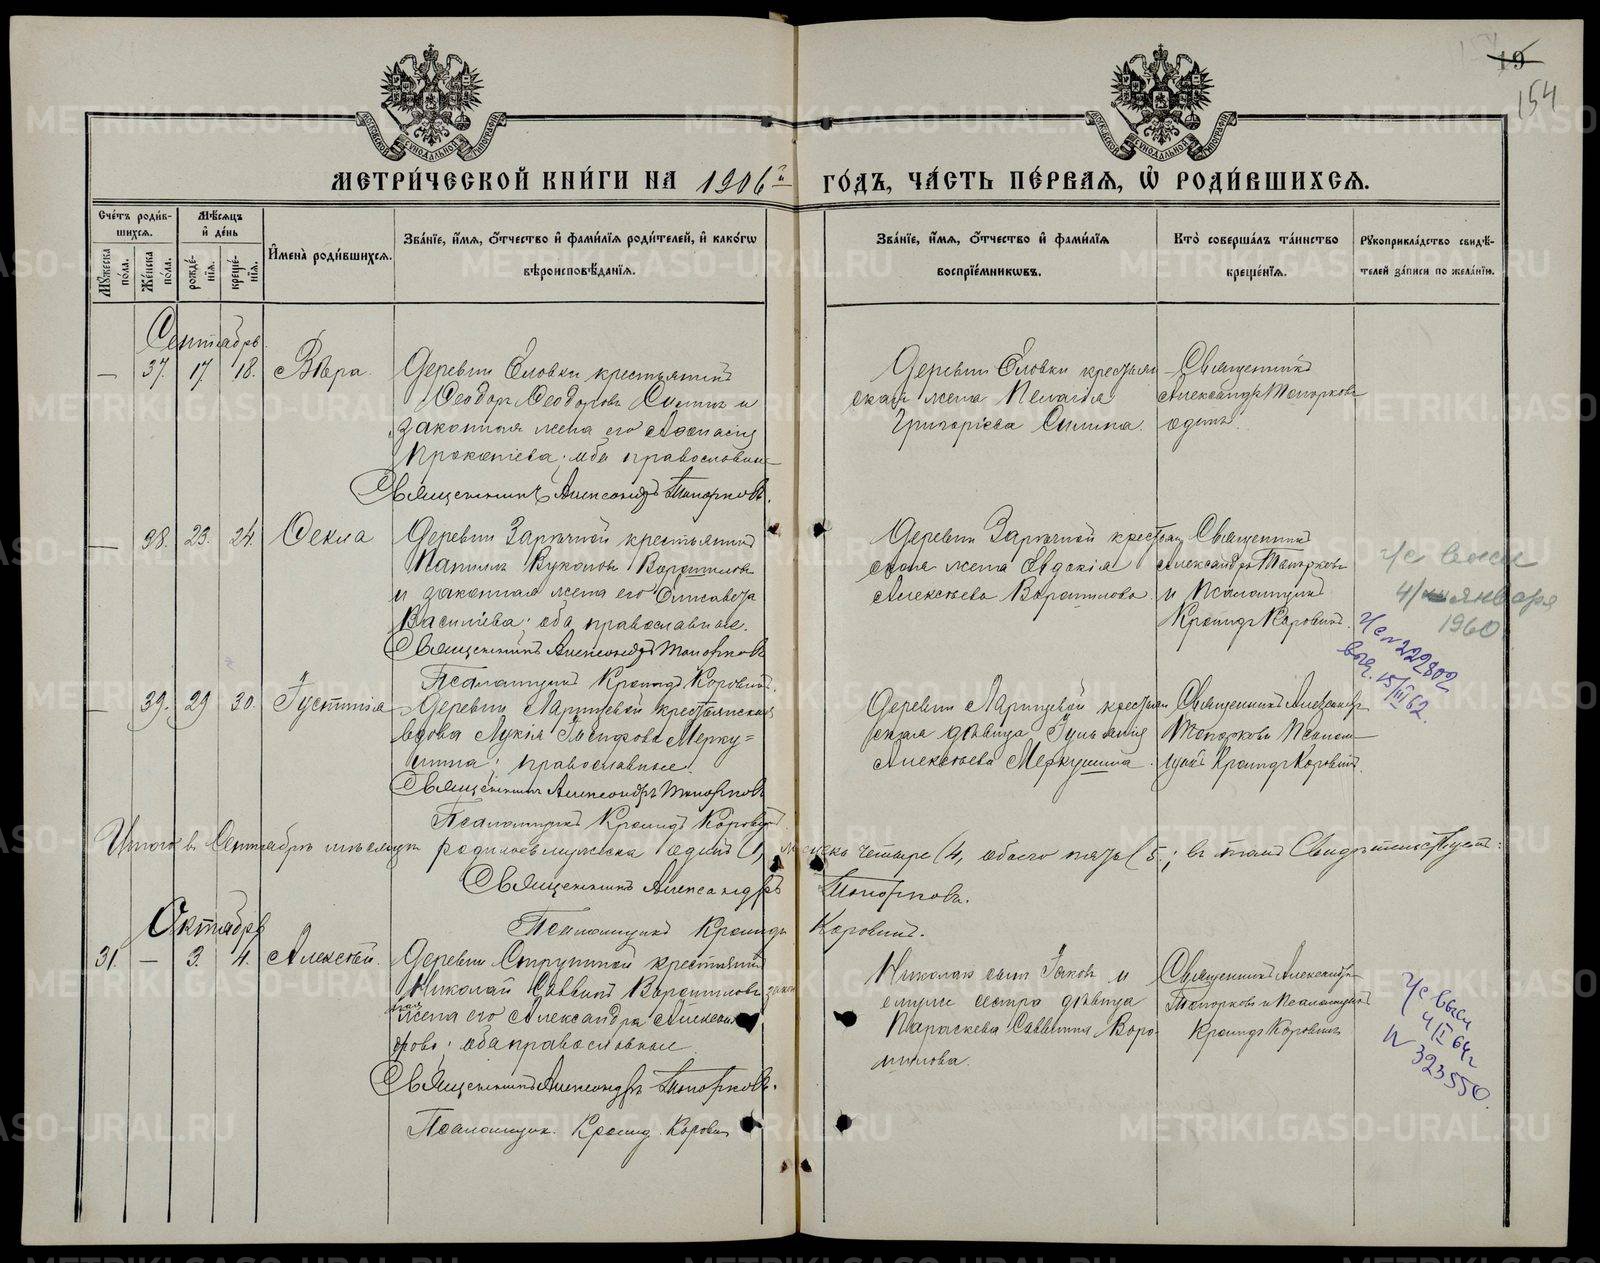 19
154
МЕТРИ́ЧЕСКОЙ КНИ́ГИ НА 1906й ГО́ДЪ, ЧА́СТЬ ПЕ́РВАЯ, Ѡ҆ РОДИ́ВШИХСЯ.
Сче́тъ роди́в-
шихся.
Мѣ́сяцъ
и҆ де́нь
Мꙋ́жеска по́ла.
Же́нска по́ла.
рожде́-нїѧ.
креще́-нїѧ.
И҆мена̀ роди́вшихся.
Зва́нїе, и҆́мѧ, ѻ҆́тчество и҆ фами́лїѧ роди́телей, и҆ како́гѡ
вѣроисповѣ́данїѧ.
Зва́нїе, и҆́мѧ, ѻ҆́тчество и҆ фами́лїѧ
воспрїе́мникѡвъ.
Кто̀ соверша́лъ та́инство
креще́нїѧ.
Рꙋкоприкла́дство свидѣ́-
телей за́писи по жела́нїю.
Сентябрь.
— 37. 17. 18. Вѣра.
Деревни Еловки крестьянинъ
Ѳеодоръ Ѳеодоровъ Силинъ и
законная жена его Аѳанасия
Прокопіева; оба православн–
Священникъ Александръ Топорковъ.
Деревни Еловки крестьян–
ская жена Пелагія
Григоріева Силина.
Священникъ
Александръ Топорковъ
одинъ.
— 38. 23. 24. Ѳекла
Деревни Зарѣчной крестьянинъ
Вуколовъ Ворошиловъ
и законная жена его Елисавета
Василіева; оба православные.
Священникъ Александръ Топорковъ
Псаломщикъ Кронидъ Коровинъ.
Деревни Зарѣчной крестьян
ская жена Евдокія
Алексѣева Ворошилова
Священникъ
Александръ Топорковъ
и Псаломщикъ
Кронидъ Коровинъ.
4/ января
1960.
№ 222802
выд. 15/III 62.
— 39. 29 30. Іустинія
Деревни Ларицевой крестьянская
вдова Лукія Меркушина; православные.
Священникъ Александръ Топорковъ
Псаломщикъ Кронидъ Коровинъ.
Деревни Ларицевой крестьян
ская дѣвица Іуліанія
Алексѣева Меркушина.
Священникъ Александръ
Топорковъ Псалом–
щикъ Кронидъ Коровинъ.
Итого въ Сентябрѣ мѣсяцѣ родилось мужеска одинъ (1, женска четыре (4, обоего пять (5; въ томъ Свидѣтельствуемъ:
Священникъ Александръ Топорковъ.
Псаломщикъ Кронидъ Коровинъ.
Октябрь
31. — 3. 4. Алексѣй.
Деревни крестьянинъ
Николай Саввинъ Ворошиловъ закон
ная жена его Александра
оба православные.
Священникъ Александръ Топорковъ.
Псаломщик. Кронид. Коровин
Николая сынъ Іаковъ и
сестра дѣвица
Параскева Саввина Воро–
шилова.
Священникъ Александръ
Топорковъ и Псаломщикъ
Кронидъ Коровинъ
4/I 64г
N 323550.
METRIKI.GASO-URAL.RU